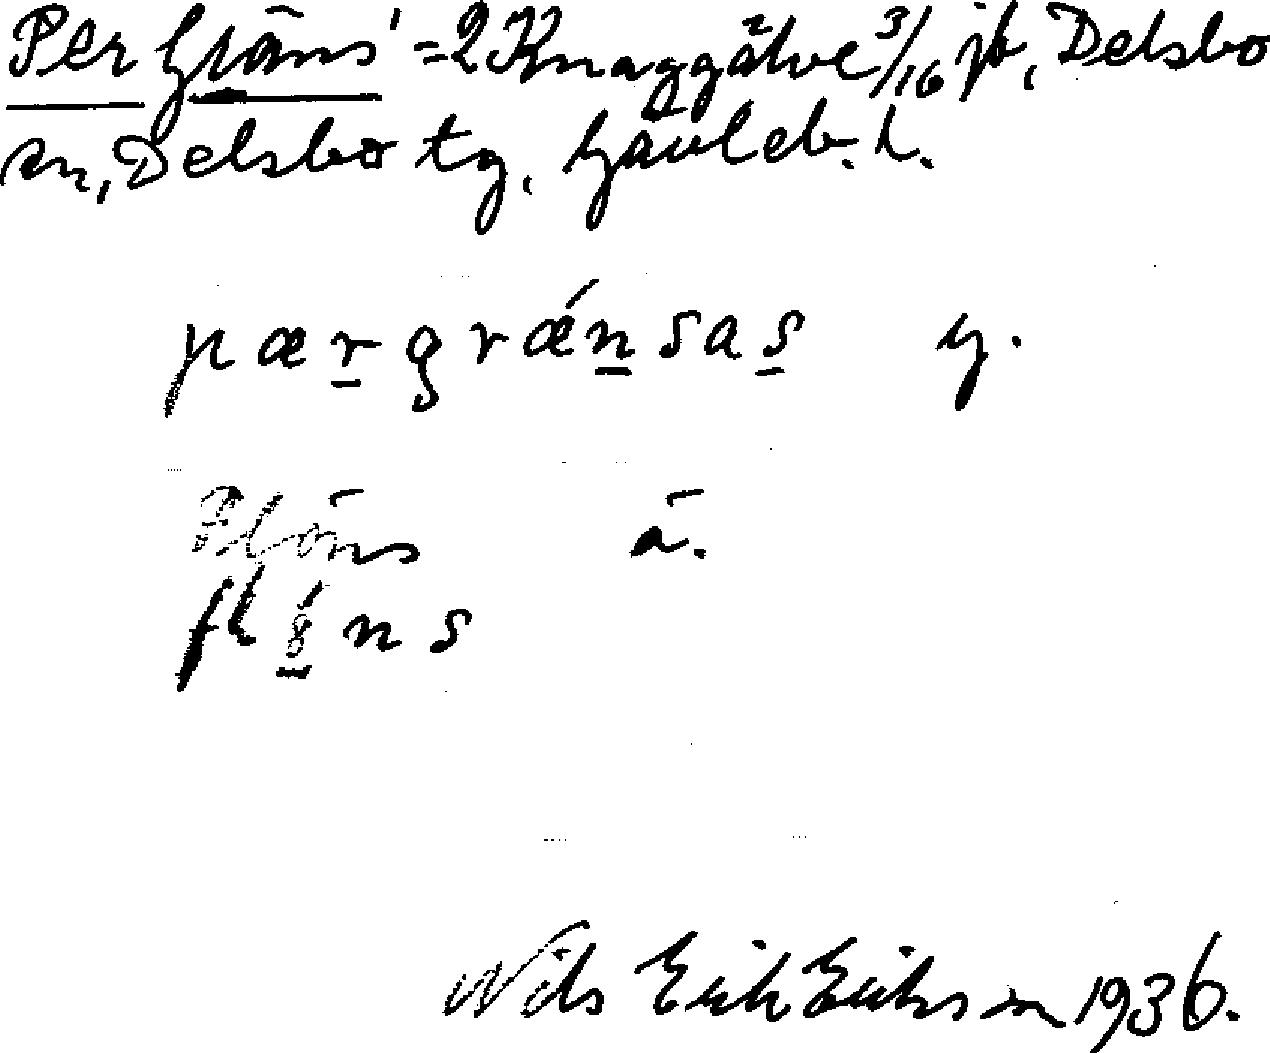 Per Gräns' =2 Knaggälve 3/16 jb, Delsbo
sn, Delsbo tg, Gävleb. l.
pærgrǽnsas y.
ä.
Nils Erik Eriksson 1936.